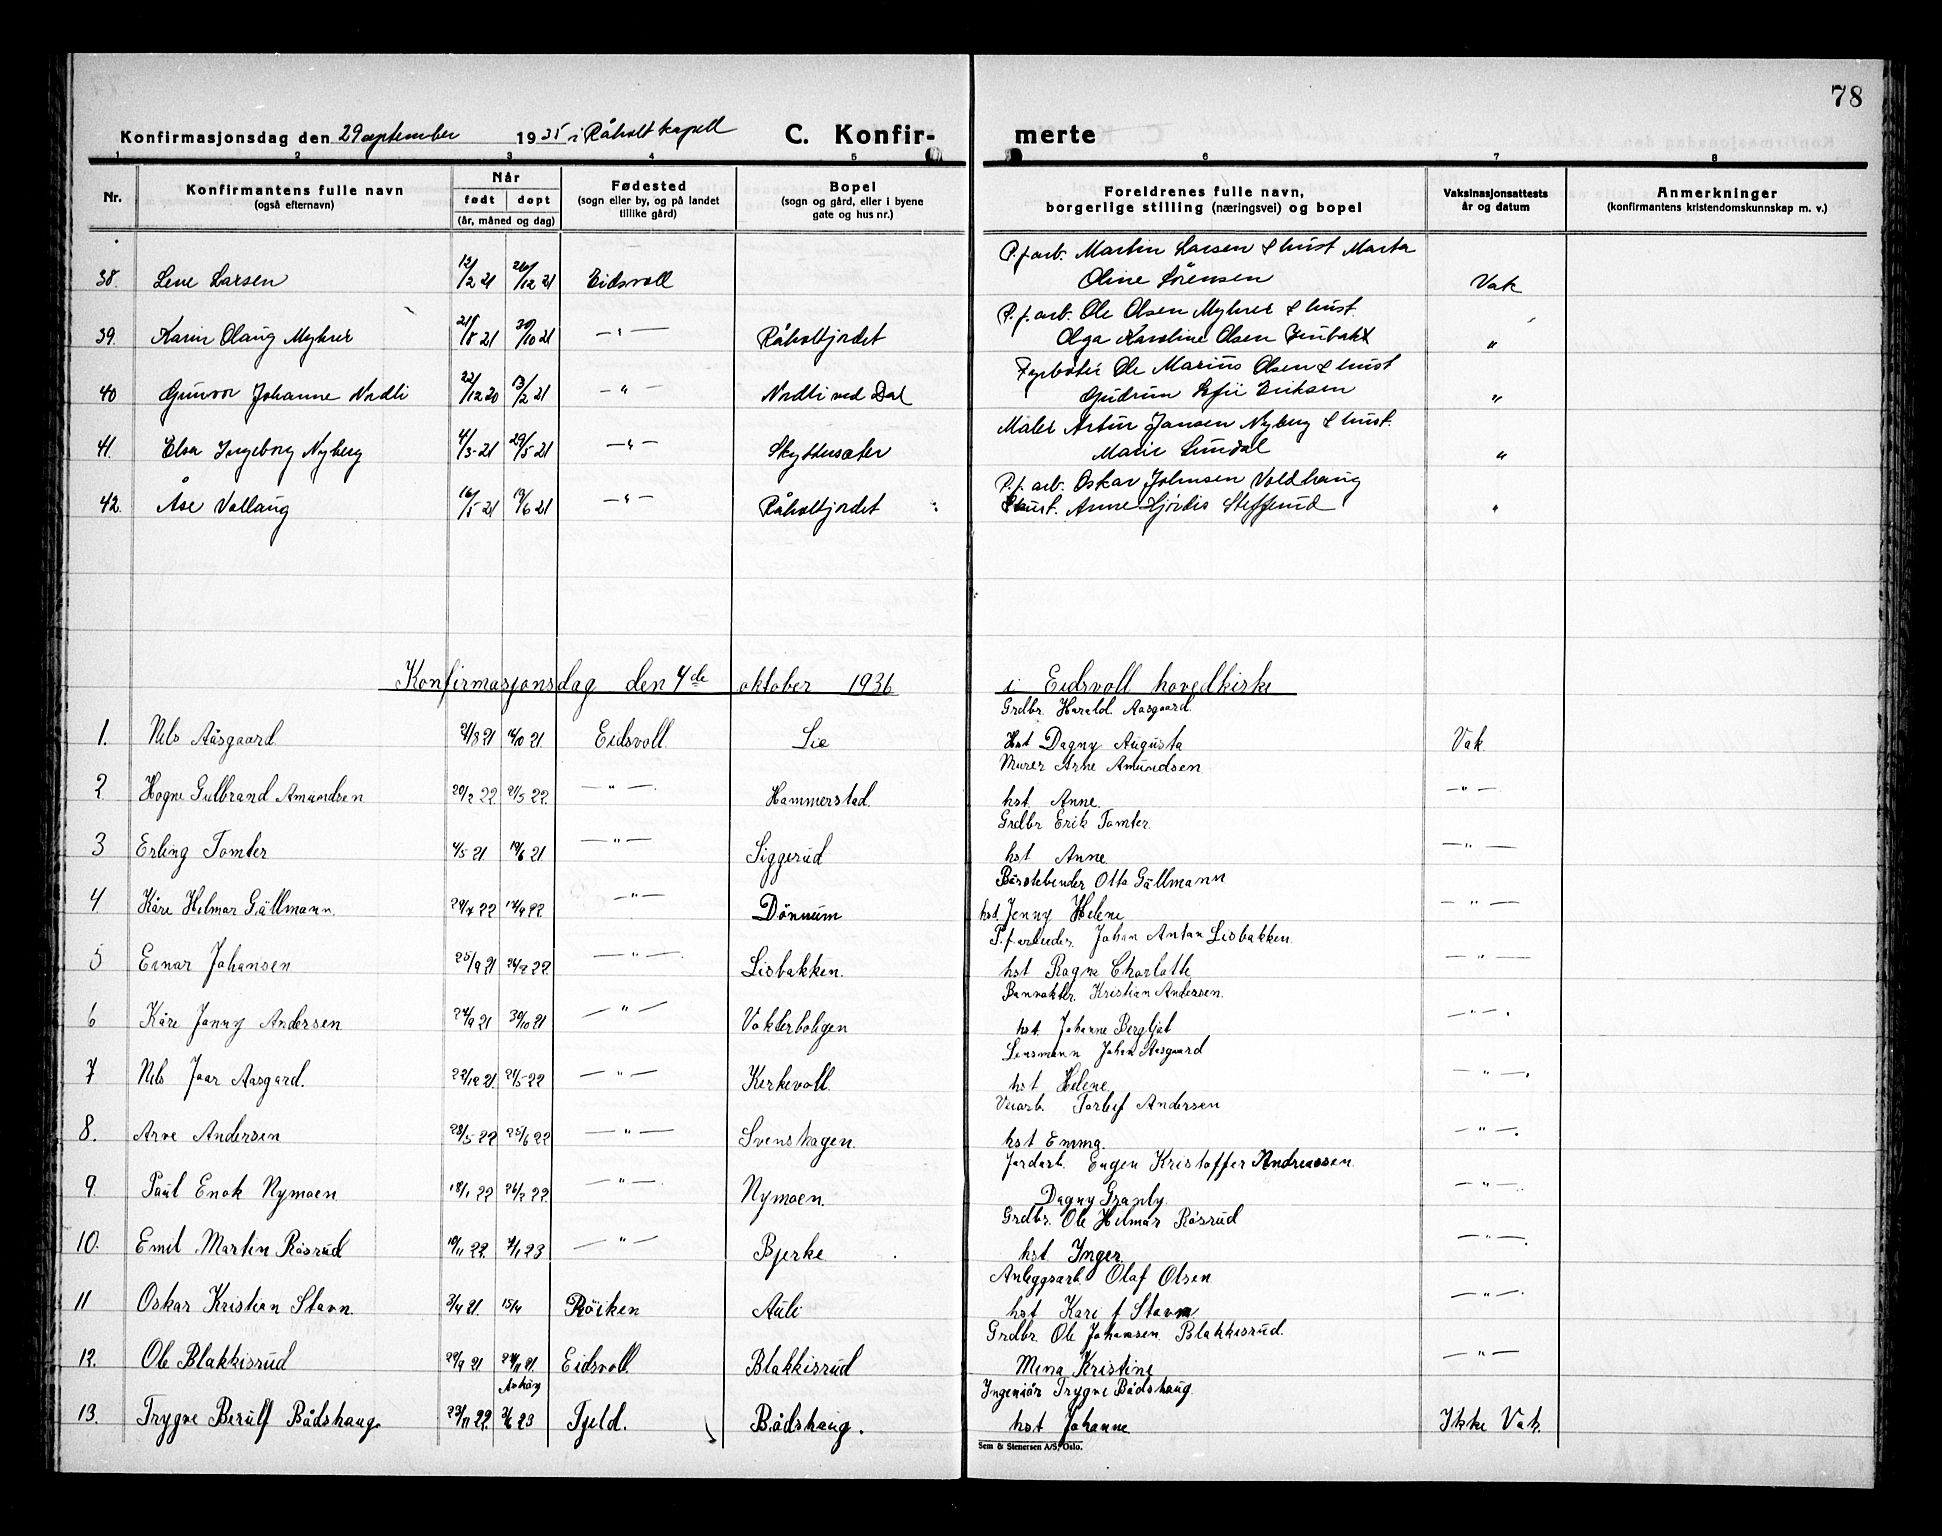 78
Konfirmasjonsdag den 29 september 1935 i Råholt kapell C. Konfir- merte
1 2 3 4 5 6 7 8
Nr. Konfirmantens fulle navn (også efternavn) Når født døpt (år, måned og dag) Fødested (sogn eller by, og på landet tillike gård) Bopel (sogn og gård, eller i byene gate og hus nr.) Foreldrenes fulle navn, borgerlige stilling (næringsvei) og bopel Vaksinasjonsattests år og datum Anmerkninger (konfirmantens kristendomskunnskap m. v.)
P.f.arb. Martin Larsen & hust Marta
38. Lene Larsen 12/2 21 26/12 21 Eidsvoll Oline Sörensen Vak
P.f.arb. Ole Olsen Myhrer & hust.
39. Karin Olaug Myhrer 21/8 21 30/10 21 —"— Råholtjordet Olga Karoline Olsen "
Fyrbøter Ole Marius Olsen & hust
40 Gunvor Johanne Nordli 22/12 20 13/2 21 —"— Nordli ved Dal Gudrun Sofie Eriksen "
Maler Artur Jansen Nyberg & hust.
41. Elsa Ingeborg Nyberg 4/3-21 29/5 21 —"— Skyttersæter Marie Lundal "
P.f.arb. Oskar Johnsen Voldhaug
42. Åse Vollaug 16/5 21 19/6 21 —"— Råholtjordet & hust. Anne Hjördis Steffenrud "
Konfirmasjonsdag den 4de oktober 1936 i Eidsvoll hovedkirke
Grdbr. Harald Aasgaard
1. Nils Aasgaard 21/8 21 16/10 21 Eidsvoll Lie Hst Dagny Augusta Vak
Murer Arne Amundsen
2 Hogne Gulbrand Amundsen 20/2 22 21/5 22 —"— Hammerstad hst Anne. —"—
Grdbr Erik Tomter
3 Erling Tomter 4/5 21 19/6 21 —"— Siggerud hst Anne —"—
Börstebinder Otto Gällmann
4 Kåre Helmar Gällmann 24/7 22 17/9 22 —"— Dönnum hst. Jenny Helene —"—
P.f. arbeider. Johan Anton Lisbakken
5 Einar Johansen 25/9 21 26/2 22 —"— Lisbakken. hst Ragna Charlotte —"—
Banvokter. Kristian Andersen
6 Kåre Jonny Andersen 24/9 21 30/10 21 —"— Vokterboligen hst. Johanne Bergljot —"—
Lensmann Johan Aasgaard
7 Nils Joar Aasgard. 22/12 21 21/5 22 —"— Kirkevoll hst Helene —"—
Veiarb. Torleif Andersen
8. Arve Andersen 28/5 22 25/6 22 —"— Svenshagen. hst Emma. —"—
Jordarb. Eugen Kristoffer Andreassen
9. Paul Enok Nymoen 18/1 22 26/2 22 —"— Nymoen. Dagny Granly. —"—
Grdbr. Ole Hilmar Råsrud
10. Emil Martin Råsrud 19/11 22 7/1 23 —"— Bjerke hst Inger —"—
Anleggsarb. Olaf Olsen
11 Oskar Kristian Stavn 3/4 21. 15/4 Röiken Auli hst Kari f Stavn —"—
Grdbr. Ole Johansen Blakkisrud.
12. Ole Blakkisrud 29/9 21 Eidsvoll Blakkisrud Mina Kristine —"—
Ingeniör Trygve Bådshaug.
13. Trygve Berulf Bådshaug. 23/11 22. 3/6 23 Fjeld. Bådshaug. hst Johanne Ikke Vak.
Sem & Stenersen A/S, Oslo.